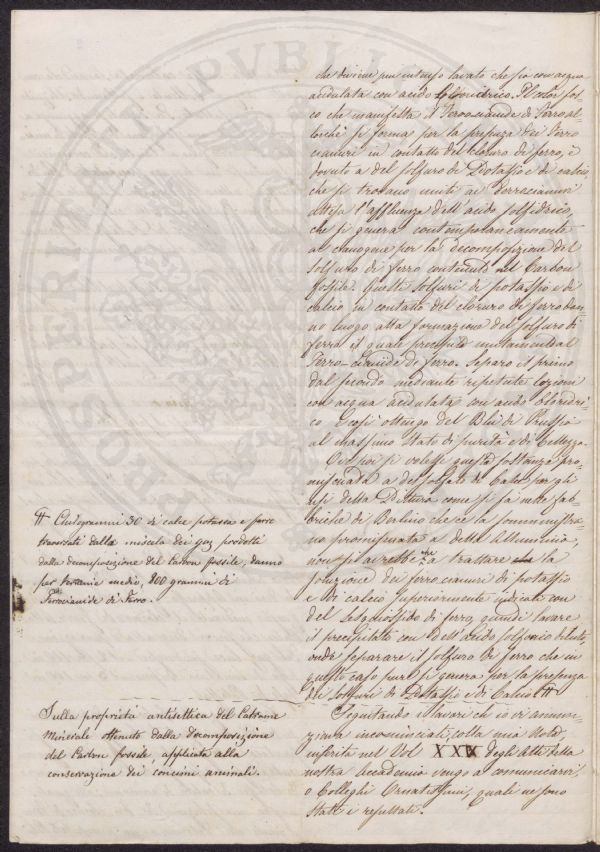 che diviene più intenso lavato che sia con acqua
acidulata con acido Cloridrico. Il color fos-
co che manifesta il Ferrocianide di Ferro al-
lorchè si forma per la presenza dei Ferro
cianuri in contatto del cloruro di ferro, è
dovuto a del solfuro di Potassio e di calcio,
che si trovano uniti ai Ferrocianuri
attesa l'affluenza dell'acido solfidrico,
che si genera contemporaneamente
al cianogene per la decomposizione del
solfuro di ferro contenuto nel Carbon
fossile. Questi solfuri di potassio e di
calcio in contatto del cloruro di ferro dan-
no luogo alla formazione del solfuro di
ferro il quale precipita unitamente al
Ferro-cianide di ferro. Separo il primo
dal secondo mediante ripetute lozioni
con acqua acidulata con acido Cloridri-
co. E così ottengo del Blù di Prussia
al massimo stato di purità e di bellezza.
Ove poi si volesse questa sostanza pro-
miscuata a del solfato di Calce per gli
usi della Pittura come si fa nelle fab-
briche di Berlino che ce la somministra-
no promiscuata a della Allumina,
non si avrebbe che a trattare la
soluzione dei ferrocianuri di potassio
e di calcio superiormente indicati con
del sesquiossido di ferro, quindi lavare
il precipitato con dell'Acido solforico diluto,
onde separare il solfuro di ferro che in
questo caso pure si genera per la presenza
dei solfuri di Potassio e di Calcio #
# Chilogrammi 30 di calce potassa e ferro
traversati dalla miscela dei gaz prodotti
dalla decomposizione del Carbon fossile, danno
per termine medio, 800 grammi di
Ferrocianide di Ferro.
Sulla proprietà antisettica del Catrame
Minerale ottenuto dalla decomposizione
del Carbon fossile, applicata alla
conservazione dei concimi animali.
Seguitando i lavori ch'io vi annun-
ziava incominciati, colla mia Nota,
inserita nel Vol XXIX degli Atti della
nostra Accademia vengo a comunicarvi,
o Colleghi Ornatissimi, quali ne sono
stati i resultati.
PROSPERITATI PUBLIC